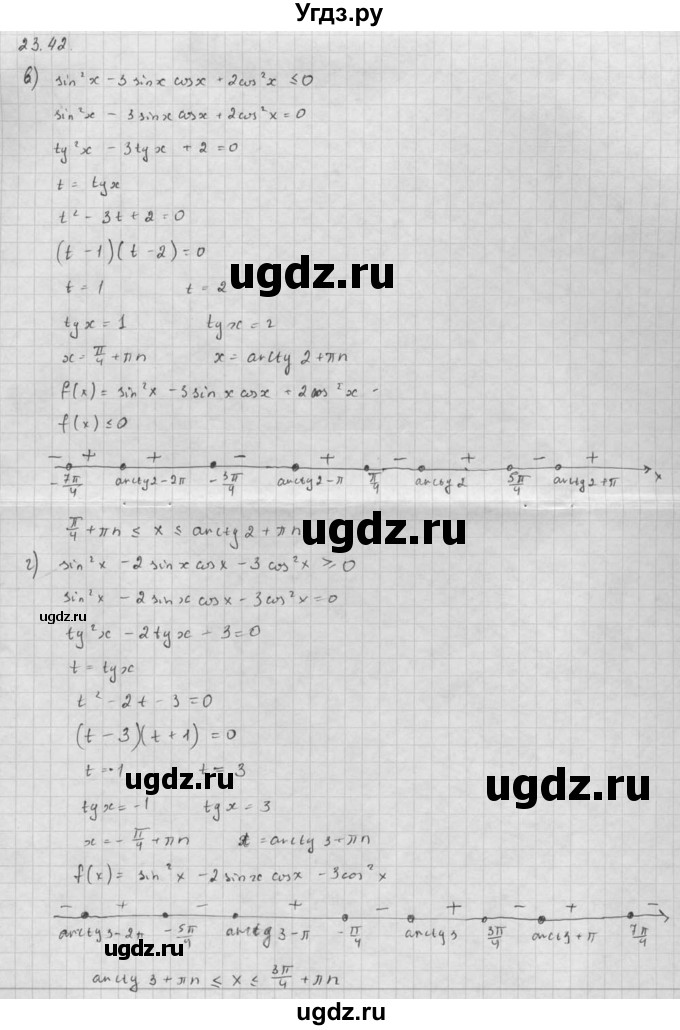 Угдз.ру
23.42.
в) sin²x - 3 sinx cosx + 2cos²x ≤ 0
sin²x - 3 sinx cosx + 2cos²x = 0
tg²x - 3tgx + 2 = 0
t = tgx
t² - 3t + 2 = 0
(t - 1)(t - 2) = 0
t = 1 t = 2
tgx = 1 tgx = 2
x = π/4 + πn x = arctg 2 + πn
f(x) = sin²x - 3 sin x cosx + 2cos²x -
f(x) ≤ 0
- + + - + - + - +
-7π/4 arctg2-2π -3π/4 arctg2-π π/4 arctg2 5π/4 arctg2+π x
π/4 + πn ≤ x ≤ arctg 2 + πn
г) sin²x - 2 sinx cosx - 3 cos²x ≥ 0
sin²x - 2 sinx cosx - 3cos²x = 0
tg²x - 2tgx - 3 = 0
t = tgx
t² - 2t - 3 = 0
(t - 3)(t + 1) = 0
t = -1 t = 3
tgx = -1 tgx = 3
x = -π/4 + πn x = arctg 3 + πn
f(x) = sin²x - 2sinx cosx - 3cos²x
- + - + - + - + -
arctg3-2π -5π/4 arctg 3-π -π/4 arctg3 3π/4 arctg3+π 7π/4
arctg 3 + πn ≤ x ≤ 3π/4 + πn
ugdz.ru
ugdz.ru
ugdz.ru
ugdz.ru
ugdz.ru
ugdz.ru
ugdz.ru